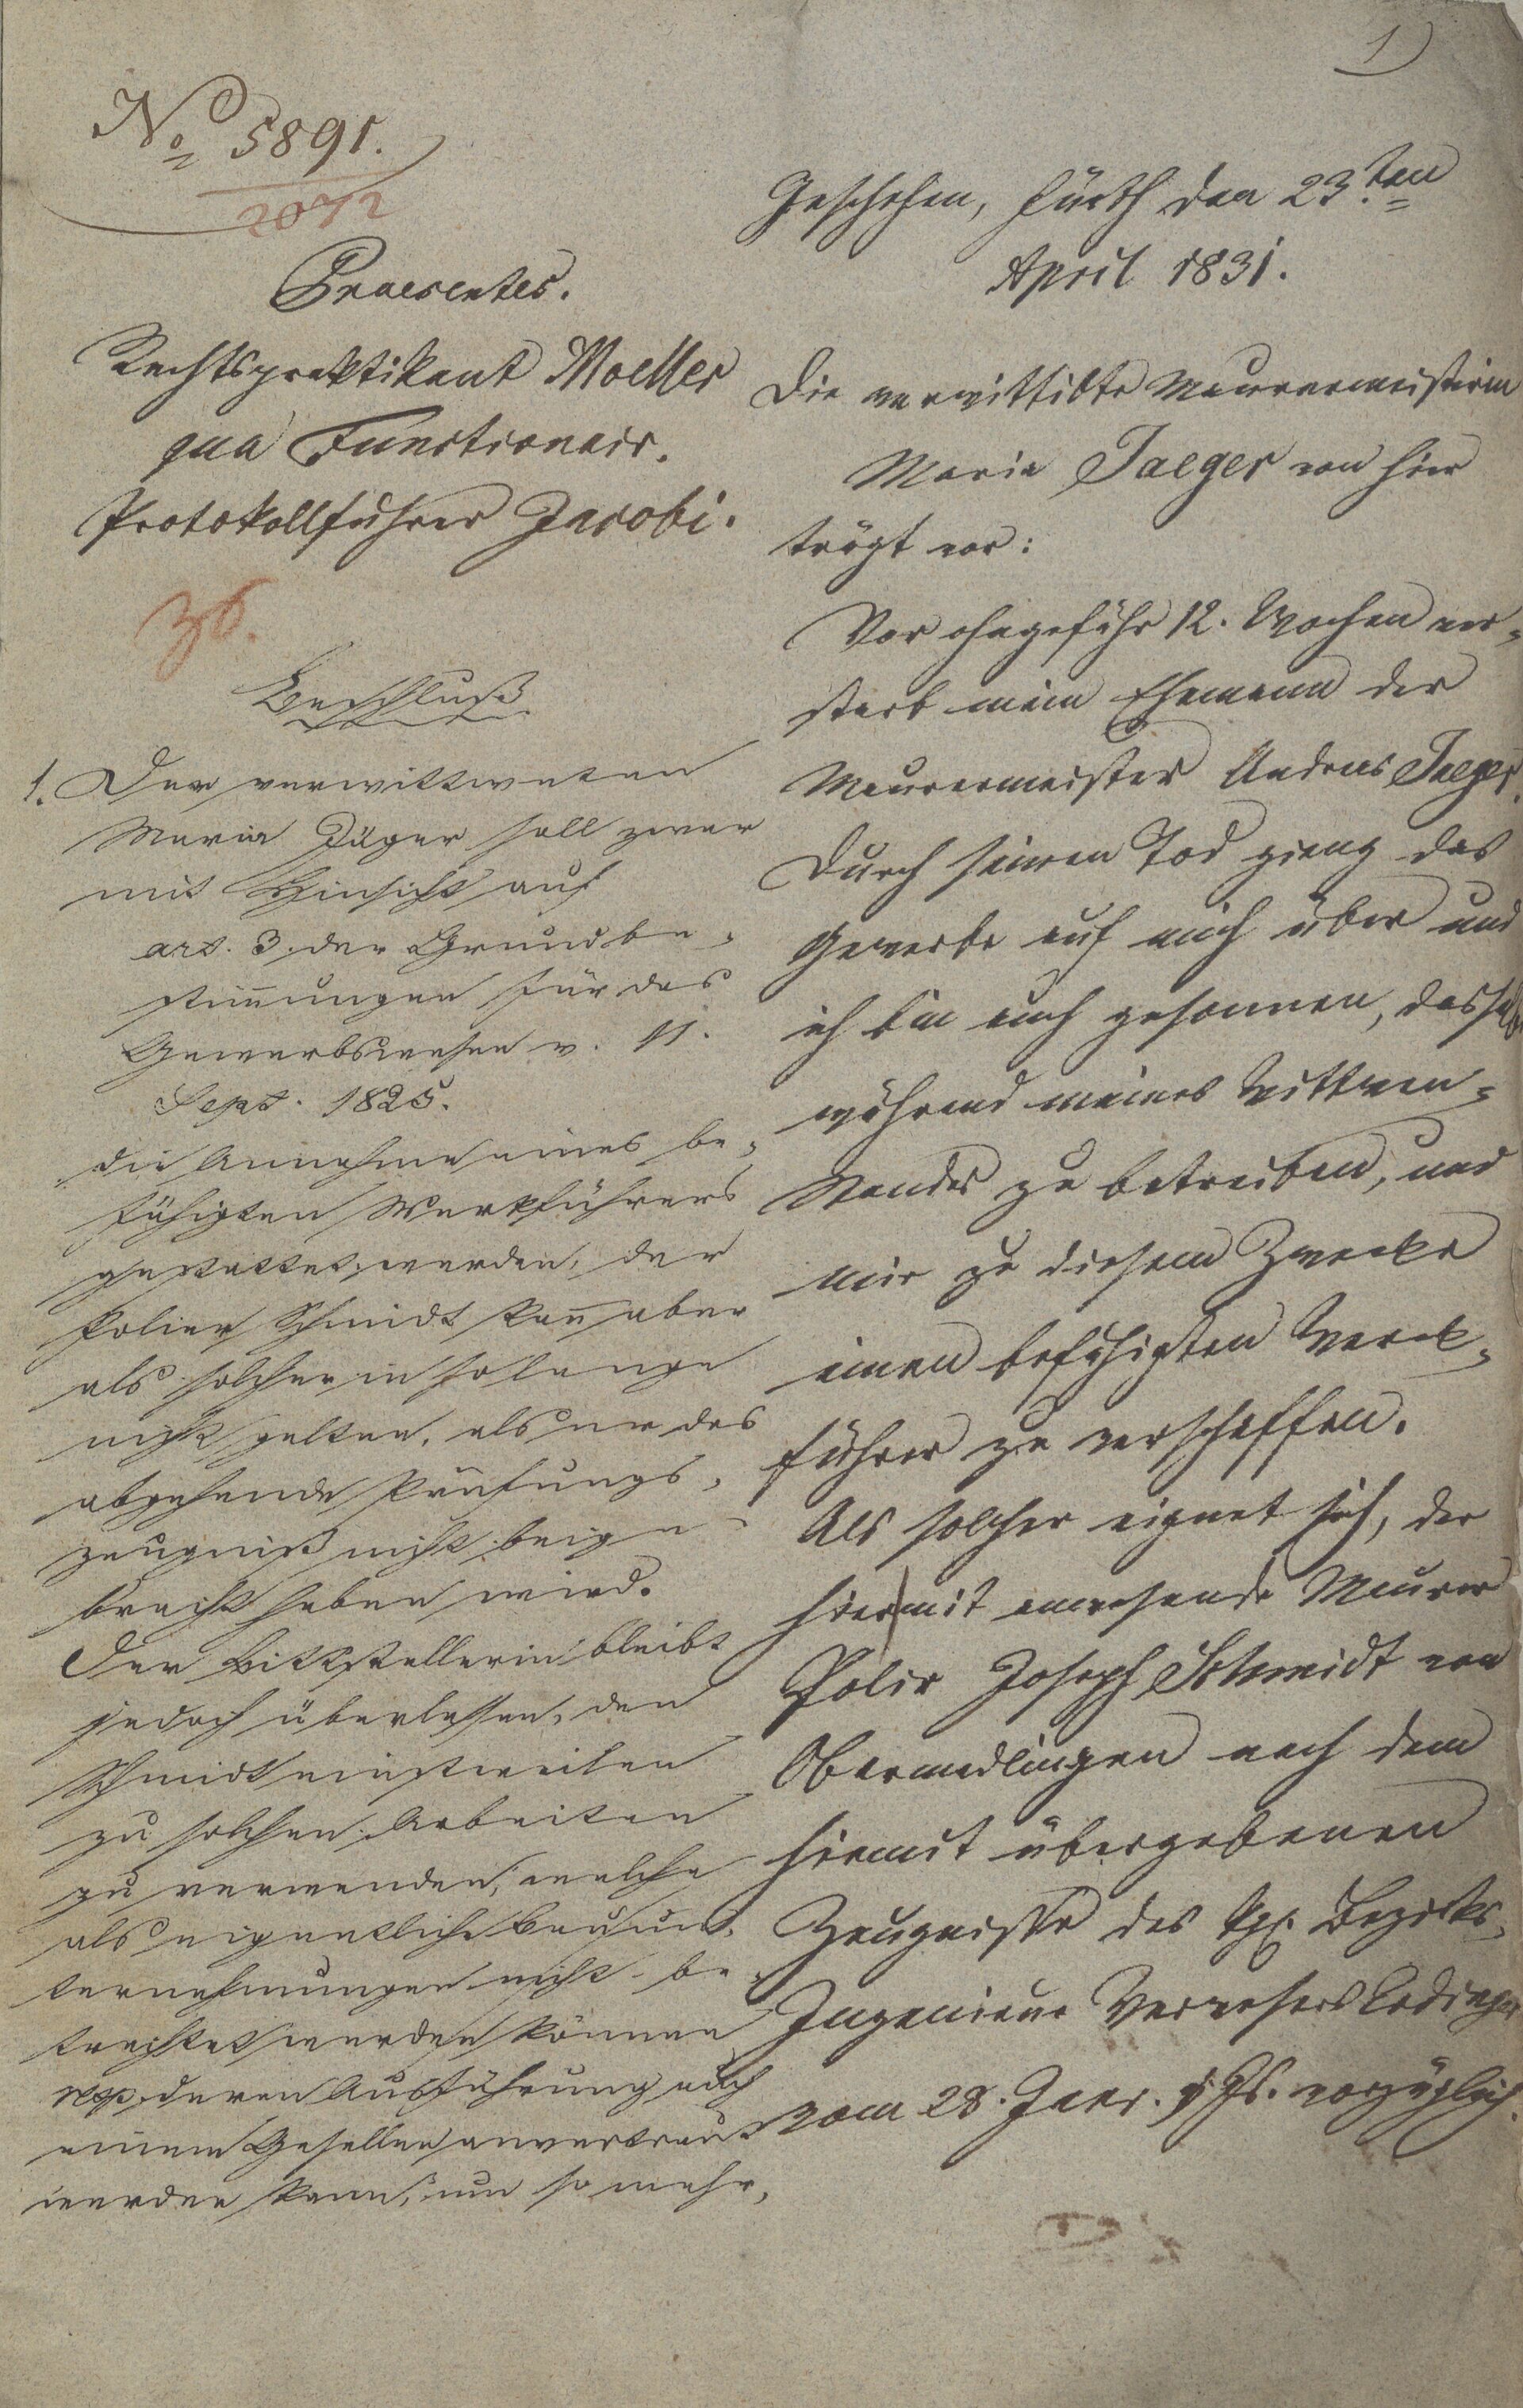 1
No 5891.
2072
Praesentes.
Rechtspraktikant Moeller
qua Functionair.
Protokollführer Jacobi.
36.
Beschluß
1. Der verwittweten
Maria Jäger soll zwar
mit Hinsicht auf
art. 3. der Grundbe-
stim̅ungen für das
Gewerbswesen v. 11.
Sept. 1825.
die Annahme eines be-
fähigten Werkführers
gestattet werden, der
Polier Schmidt kan̅ aber
als solcher in so lange
nicht gelten, als er das
abgehende Prüfungs-
zeugniß nicht beige-
bracht haben wird.
Der Bittstellerin bleibt
jedoch überlassen, den
Schmidt einstweilen
zu solchen Arbeiten
zu verwenden, welche
als eigentliche Bauun-
ternehmungen nicht be-
trachtet werden können
resp. deren Ausführung auch
einem Gesellen anvertraut
werden kann, um so mehr,
Geschehen, Fürth den 23.ten
April 1831.
Die verwittibte Maurermeisterin
Maria Jaeger von hier
trägt vor:
Vor ohngefähr 12. Wochen ver-
starb mein Ehemann der
Maurermeister Andreas Jaeger.
Durch seinen Tod gieng das
Gewerbe auf mich über und
ich bin auch gesonnen, dasselbe
während meines Wittwen-
standes zu betreiben, und
mir zu diesem Zwecke
einen befähigten Werck-
führer zu verschaffen.
Als solcher eignet sich, der
hier mit anwesende Maurer
Polir Joseph Schmidt von
Obermedlingen nach dem
hiemit übergebenen
Zeugnisse des kgl. Bezirks-
Ingenieur Verwesers
vom 28. Janr. d Js. vorzüglich.